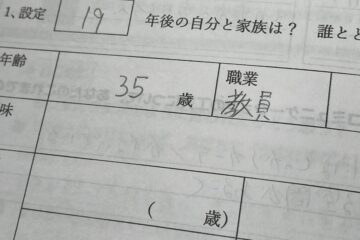 1、設定 19 年後の自分と家族は？ 誰とと
年齢 35 歳 職業 教員
味
( 歳)